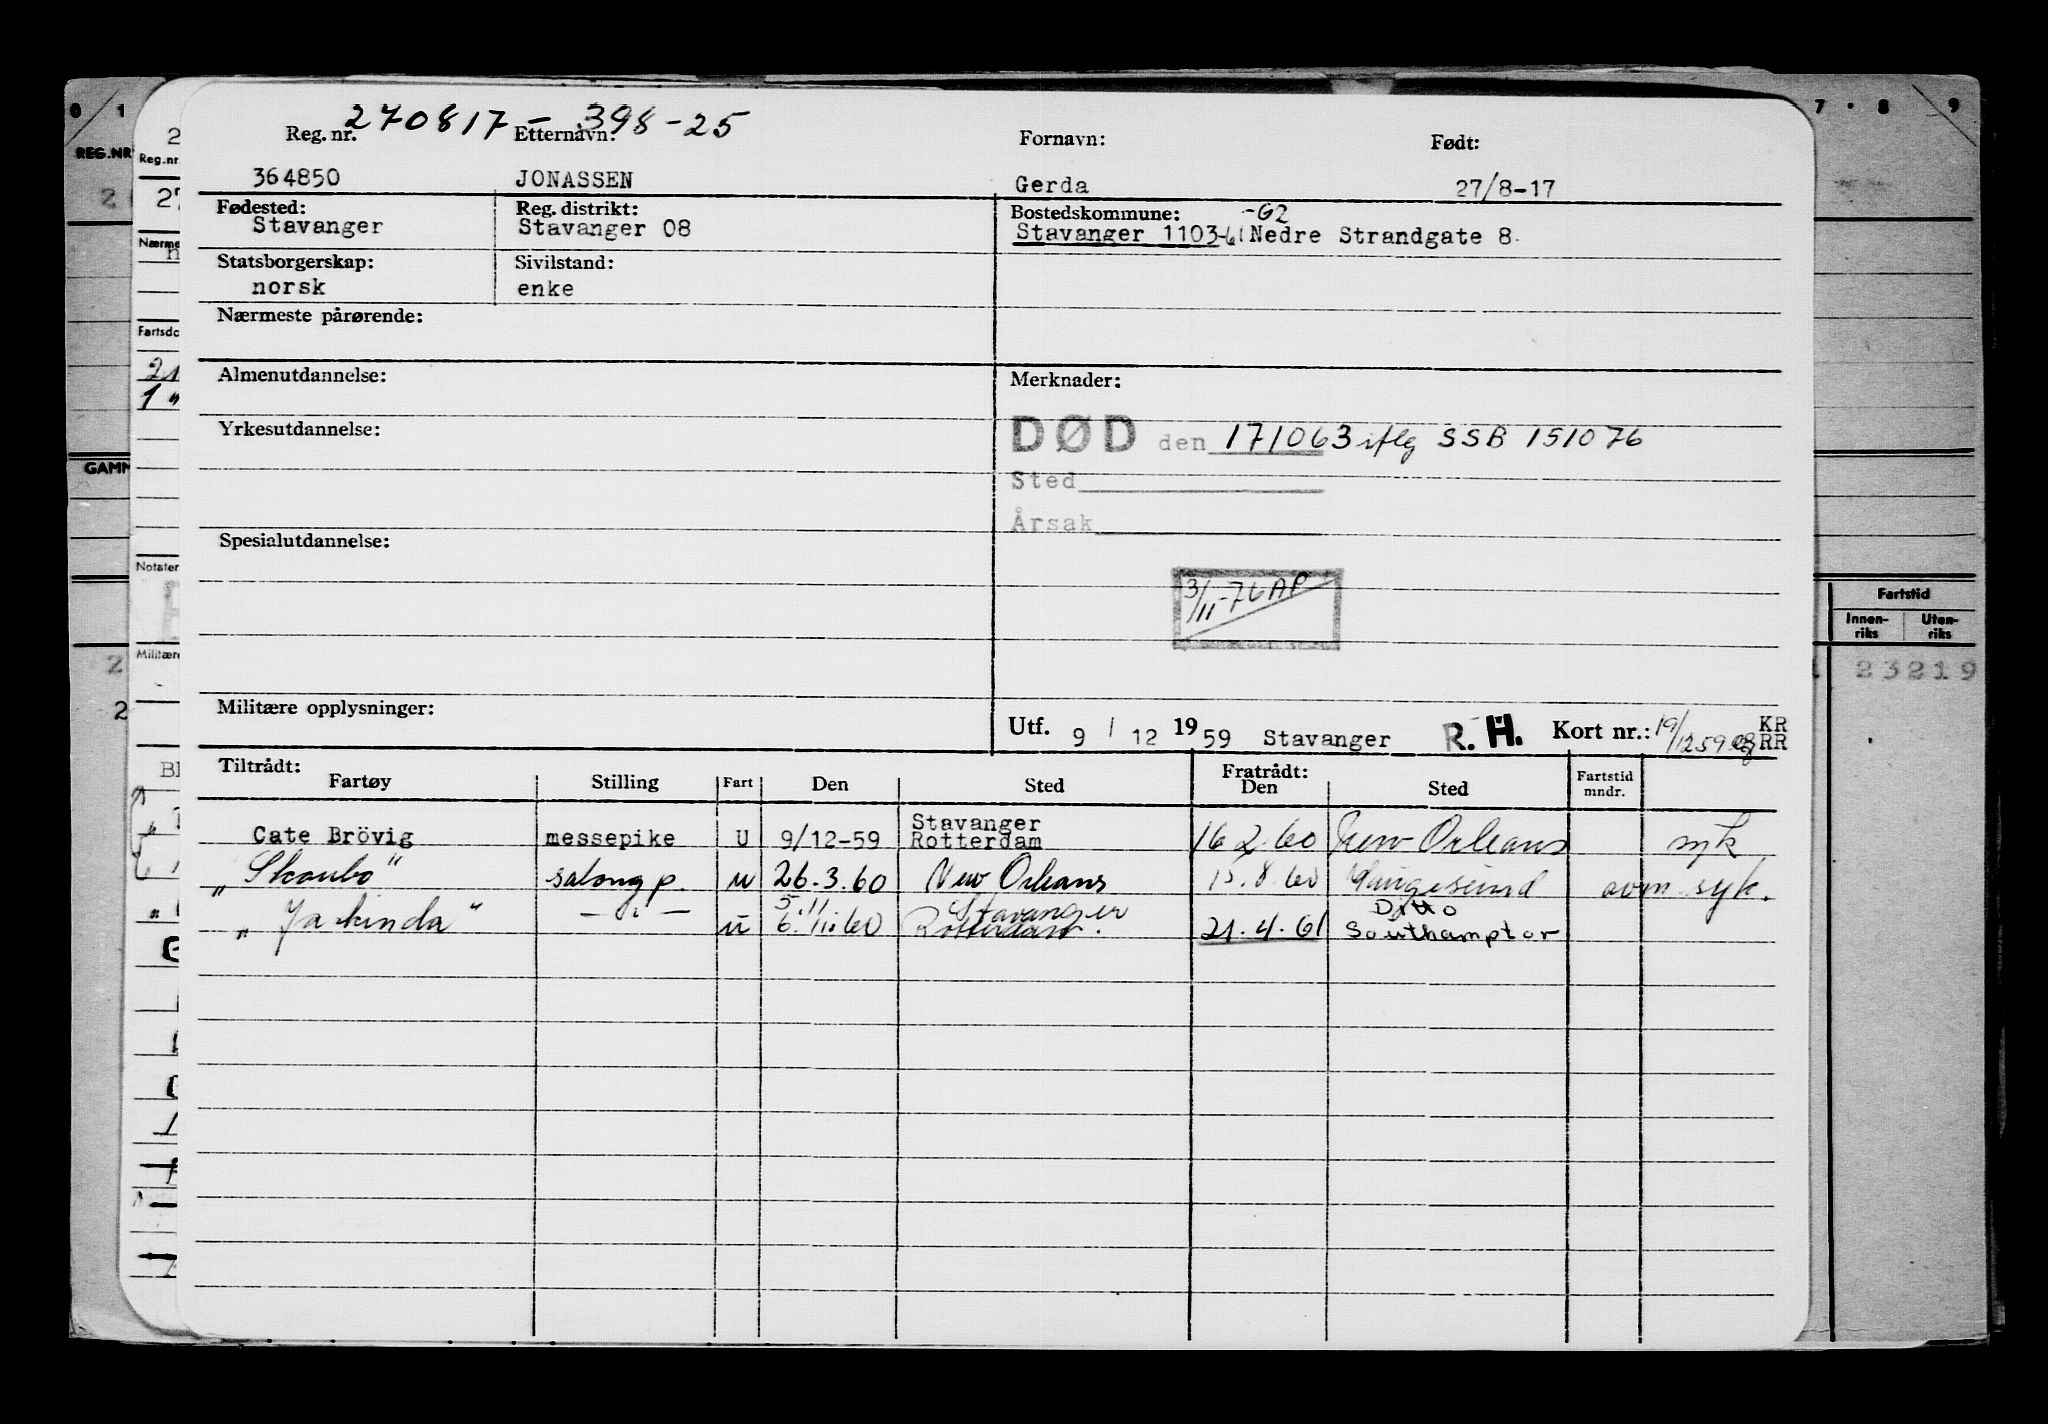 270817 - 398-25
Reg. nr. Etternavn: Fornavn: Født:
364850 JONASSEN Gerda 27/8-17
Fødested: Reg. distrikt: Bostedskommune: -62
Stavanger Stavanger 08 Stavanger 1103-61 Nedre Strandgate 8.
Statsborgerskap: Sivilstand:
norsk enke
Nærmeste pårørende:
Almenutdannelse: Merknader:
Yrkesutdannelse: DØD den 171063 iflg SSB 151076
Sted
Årsak
Spesialutdannelse:
3/11-76 AP
Militære opplysninger:
Utf. 9 / 12 1959 Stavanger R. H. Kort nr.: 19/12 59 KR
RR
Tiltrådt: Fratrådt:
Fartøy Stilling Fart Den Sted Den Sted Fartstid mndr.
Stavanger
Cate Brövig messepike U 9/12-59 Rotterdam 16 2.60 New Orleans syk
"Skaubo" salongp. u 26.3.60 New Orleans 15.8.60 Haugesund avm. syk.
5.11 Stavanger Ditto
"Jarkinda" — " — u 6.11.60 Rotterdam. 21.4.61 Southampton
0 1
REG.NR
Reg.nr
27
Nærme
Fartsdo
21
1 "
GAMM
Notater
Militære
2
7 · 8 9
Fartstid
Innen-
riks Uten-
riks
23219